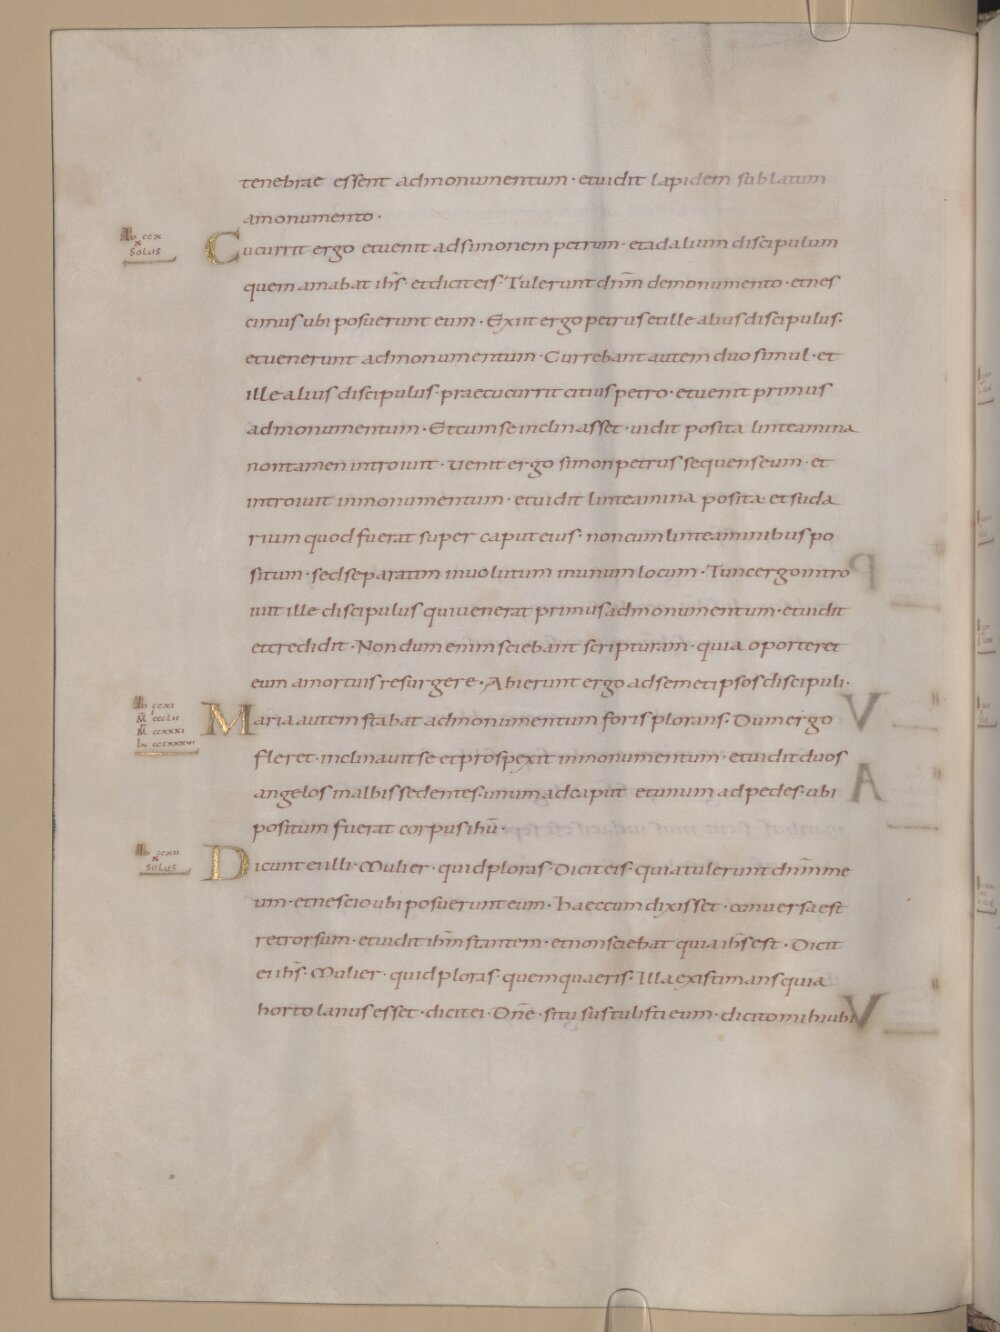 tenebrae essent admonumentum · etuidit lapidem sublatum
amonumento ·
Io ccx
X
SOLUS
Cucurrit ergo etuenit adsimonem petrum · etadalium discipulum
quem amabat ihs̄ · etdicit eis · Tulerunt dnm̄ demonumento · etnes
cimus ubi posuerunt eum · Exiit ergo petrus etille alius discipulus ·
etuenerunt admonumentum · Currebant autem duo simul · et
ille alius discipulus · praecucurrit citius petro · etuenit primus
admonumentum · Etcum se inclinasset · uidit posita linteamina
nontamen introiuit · Uenit ergo simonpetrus sequenseum · et
introiuit inmonumentum · etuidit linteamina posita · et suda
rium quod fuerat super caput eius · noncum linteaminibus po
situm · sed separatim inuolutum inunum locum · Tunc ergo intro
iuit ille discipulus qui uenerat primus admonumentum · etuidit
etcredidit · Nondum enim sciebant scripturam · quia oporteret
eum amortuis resurgere · Abierunt ergo adsemetipsos discipuli ·
Io ccxi
M ccclii
M ccxxxi
Lu cccxxxvi
Maria autem stabat admonumentum foris plorans · Dum ergo
fleret · inclinauit se et prospexit inmonumentum · etuidit duos
angelos inalbis sedentes · unum adcaput etunum adpedes · ubi
positum fuerat corpus ihū ·
Io ccxii
X
SOLUS
Dicunt ei illi · Mulier · quid ploras · Dicit eis · quia tulerunt dnm̄ me
um · etnescio ubi posuerunt eum · haec cum dixisset · conuersa est
retrorsum · etuidit ihm̄ stantem · etnon sciebat quia ihs̄ est · Dicit
ei ihs̄ · Mulier · quid ploras · quem quaeris · Illa existimans quia
hortolanus esset · dicit ei · Dnē · situ sustulisti eum · dicito mihi ubi